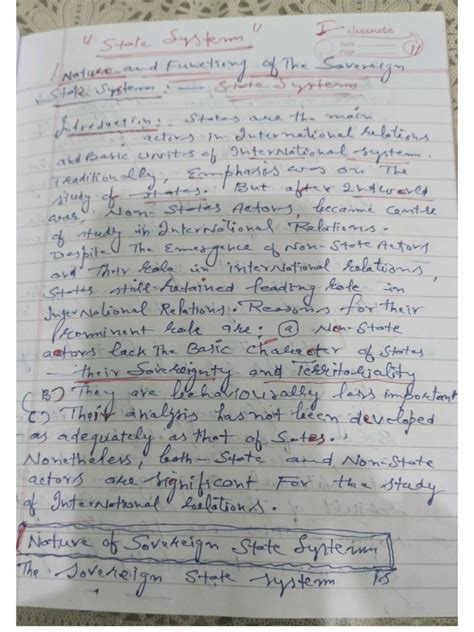 "State System"
I
classmate
Date
Page
Nature and Functiong of The Sovereign
State System: - State System
Introduction: - States are the main
actors in International relations
and Basic Unites of International system.
Traditionally, Emphasis was on The
study of States. But after 2nd world
was, Non-States Actors, became centre
of study in International Relations.
Despite The Emergence of Non-State Actors
and Their Role in international relations,
States still retained leading Role in
International Relations. Reasons for their
prominent Role are: (a) Non-State
actors lack The Basic Character of States
- their Sovereignty and Territoriality
(B) They are behaviourally less important
C) Their analysis has not been developed
as adequately as that of Sates.
Nonetheless, both-State and Non-State
actors are significant For the study
of International relations.
Nature of Sovereign State System
The Sovereign State system is